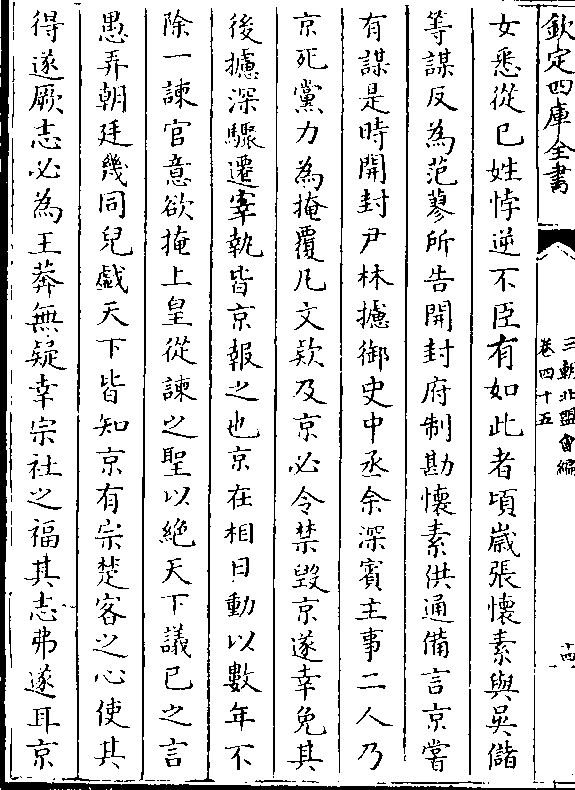 欽定四庫全書
三朝北盟會編
卷四十五
十四
女悉從已姓悖逆不臣有如此者頃嵗張懷素與吳儲
等謀反為范蓼所告開封府制勘懷素供通備言京嘗
有謀是時開封尹林攄御史中丞余深賓主事二人乃
京死黨力為掩覆凡文款及京必令禁毀京遂幸免其
後攄深驟遷宰執皆京報之也京在相日動以數年不
除一諫官意欲掩上皇從諫之聖以絶天下議已之言
愚弄朝廷幾同兒戲天下皆知京有宗楚客之心使其
得遂厥志必為王莽無疑幸宗社之福其志弗遂耳京